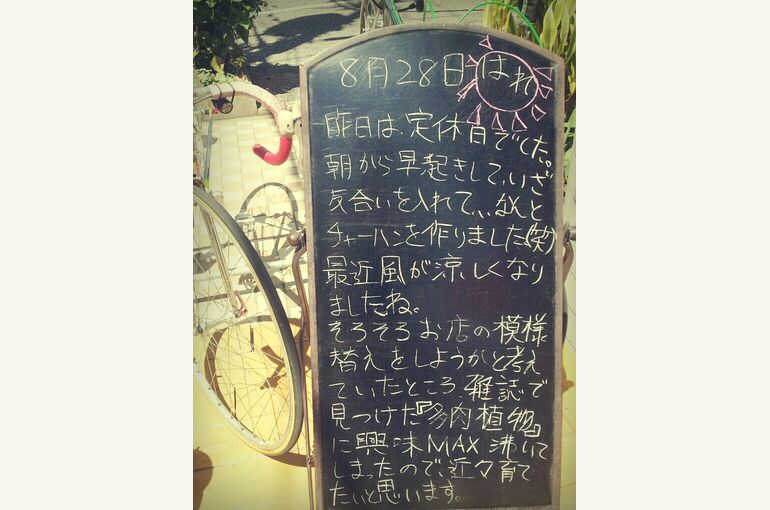 8月28日 はれ
昨日は、定休日でした。
朝から早起きして、いざ
気合いを入れて、、なんと
チャーハンを作りました(笑)
最近風が涼しくなり
ましたね。
そろそろお店の模様
替えをしようかと考え
ていたところ、雑誌で
見つけた『多肉植物』
に興味MAX沸いて
しまったので、近々育て
たいと思います。